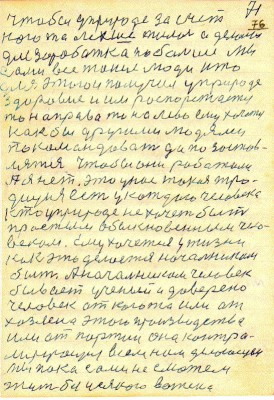 71
76
чтобы уприроде за счёт
кого то лехкие и делать
для заработка побольше мы
сами все такие люди кто
для этого и получил уприроде
здоровие и им роспоряжается
то направо то налево ему хочется
как бы другими людями
покомандовать да позастов-
лять чтобы они работали
А я нет. это у нас такая тра-
диция есть у каждого человека
Кто уприроде не хочет быть
простым обыкновенным чело-
веком. Ему хочется у жизни
как это делается начальником
быть. А начальником человек
бывает ученый и доверено
человек от кого то или от
хозяена этого производства
или от партии она контро-
лирующия всем нам
Мы пока сами не сможем
жить без всякого вожака